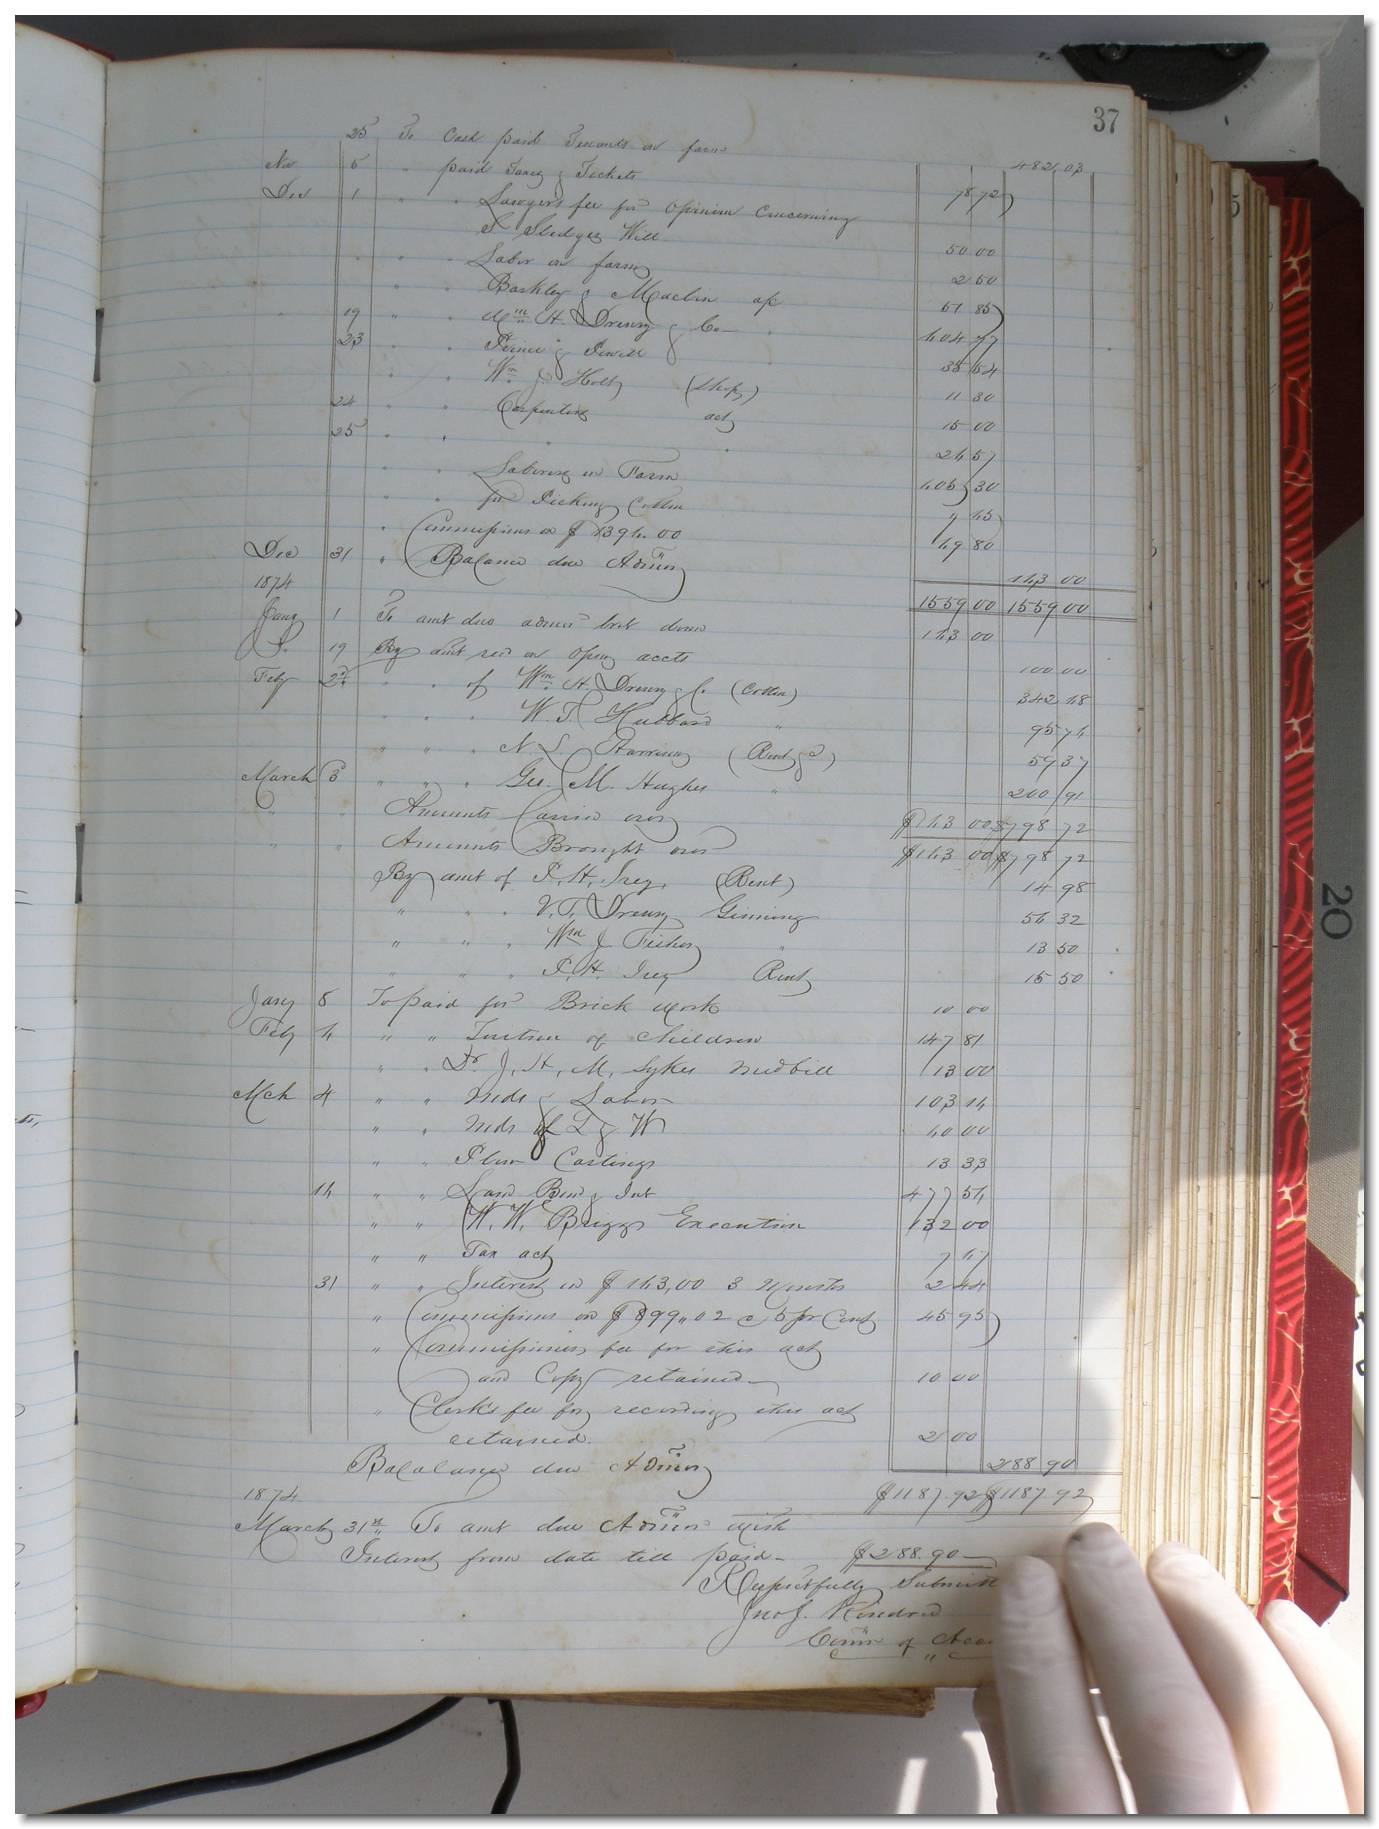 37
25 To Cash paid Tenants on farm 482.03
Nov 5 " paid Taxes & Tickets 78 72
Dec 1 " " Lawyers fee for opinion concerning
S Sledges Will 50 00
" " Labor on farm 2 50
" " Barkley & Maclin ac 51 85
19 " " Wm H. Drewry & Co 404 77
23 " " Prince & 35 54
" " Wm J Holt (Shop) 11 30
24 " " Carpenters act 15 00
25 " " " 24 57
" " Laborers on Farm 405 30
" " for Picking Cotton 7 45
" Commissions on $1394.00 49 80
Dec 31 " Balance due Admr 143 00
1874 1559 00 1559 00
Jany 1 To amt due admr brot down 143 00
19 By amt recd on Open accts 100 00
Feby " " of Wm H. Drewry & Co (Cotton) 342 48
" " " W. T. Hubbard " 95 74
" " " N. L. Harrison (Rent &c) 59 37
March 3 " " " Geo. M. Hughes " 200 91
" " Amounts Carried over $143 00 $798 72
" " Amounts Brought over $143 00 $798 72
By amt of P. H. Ivey, (Rent) 14 98
" " " V. T. Drewry Ginning 54 32
" " " Wm J Fisher " 13 50
" " " P. H. Ivey Rent 15 50
Jany 8 To paid for Brick work 10 00
Feby 4 " " Tuition of children 147 81
" " Dr J. H. M. Sykes Med bill 13 00
Mch 4 " " Mds & Labor 103 14
" " Mds of L & W 40 00
" " Plow Castings 13 33
14 " " Land Bond & Int 477 54
" " W. W. Briggs Execution 132 00
" " Tax act 7 47
31 " " Interest on $143,00 3 Months 2 44
" Commissions on $899.02 @ 5 pr Cent 45 95
" Commissioners fee for this act
and Copy retained 10 00
" Clerks fee for recording this act
retained. 2 00
Balalance due Admr 288 90
1874 $1187.92 $1187.92
March 31st To amt due Admr with
Interest from date till paid $288.90
Respectfully Submitt
Jno J. Kindred
Comr of Acco